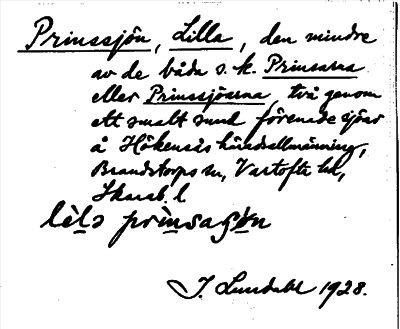 Prinssjön, Lilla, den mindre
av de båda s. k. Prinsarna
eller Prinssjöarna, två genom
ett smalt sund förenade sjöar
å Hökensås häradsallmänning,
Brandstorps sn, Vartofta hd,
Skarab. l
J. Lundahl 1928.